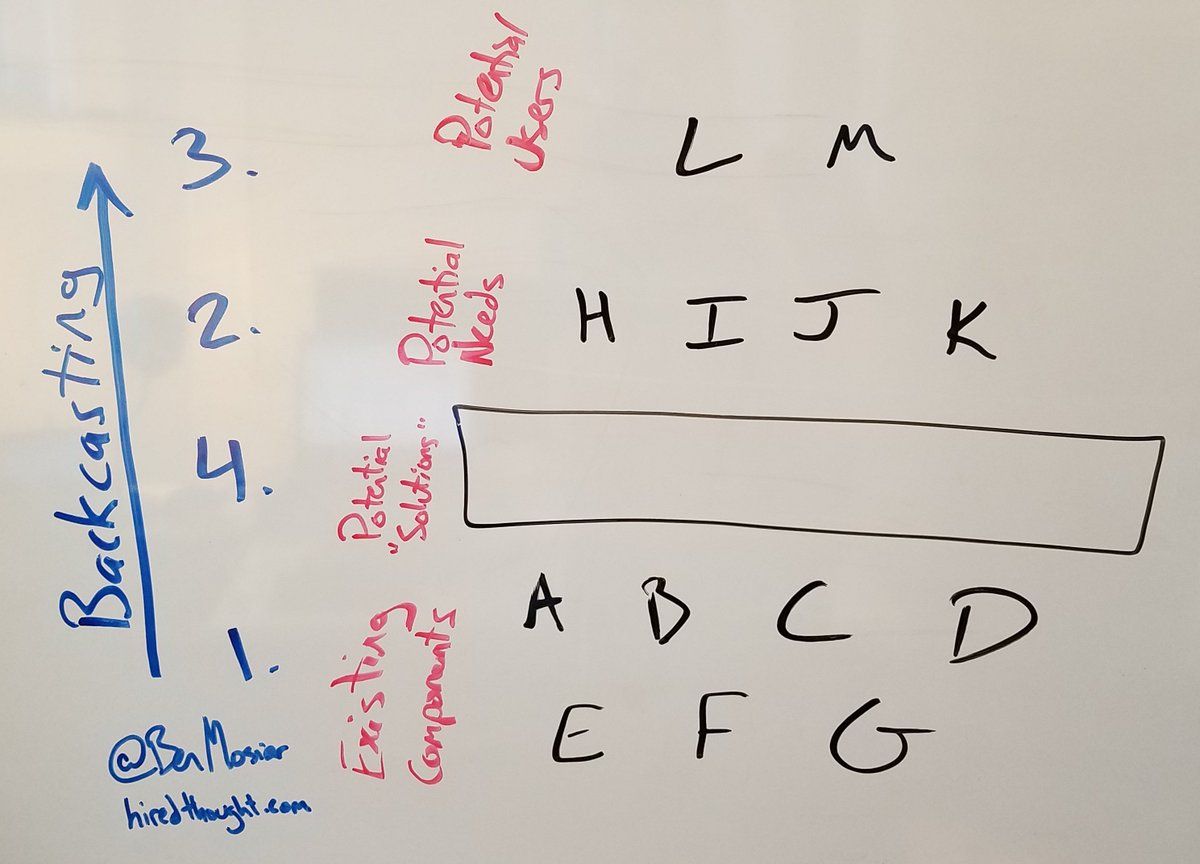 Backcasting
3.
Potential
Users
L M
2.
Potential
Needs
H I J K
4.
Potential
"Solutions"
1.
Existing
Components
A B C D
E F G
@BenMosior
hiredthought.com